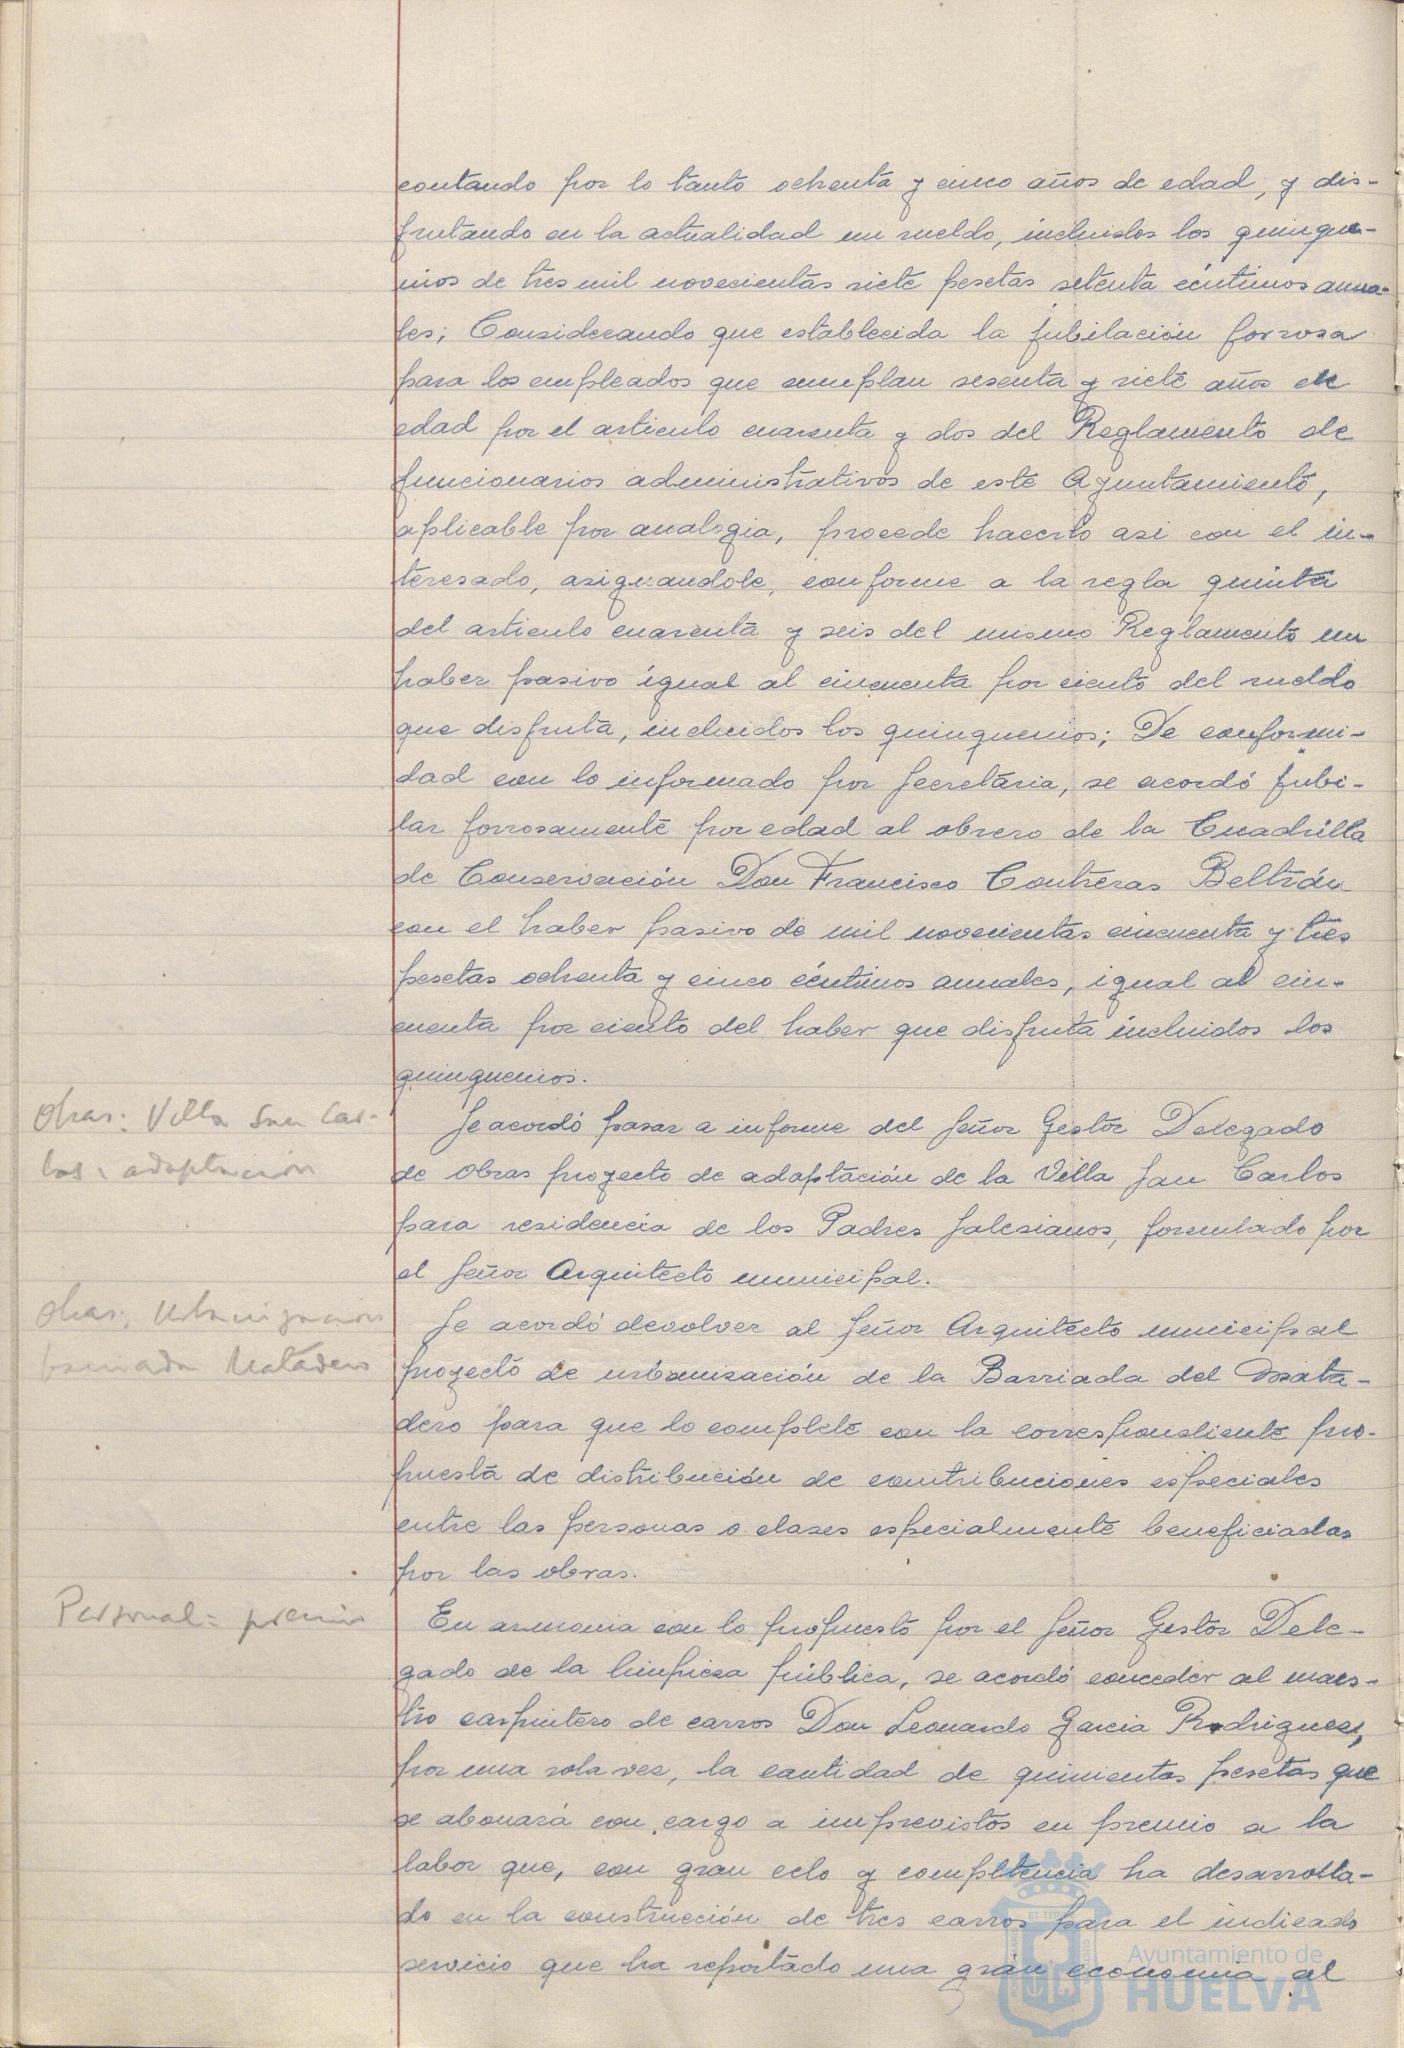 contando por lo tanto ochenta y cinco años de edad, y dis-
frutando en la actualidad un sueldo, incluidos los quinque-
nios de tres mil novecientas siete pesetas setenta céntimos anua-
les; Considerando que establecida la jubilación forrosa
para los empleados que cumplan sesenta y siete años de
edad por el articulo cuarenta y dos del Reglamento de
funcionarios administrativos de este Ayuntamiento,
aplicable por analogia, procede hacerlo asi con el in-
teresado, asignandole, conforme a la regla quinta
del articulo cuarenta y seis del mismo Reglamento un
haber pasivo igual al cincuenta por ciento del sueldo
que disfruta, incluidos los quinquenios; De conformi-
dad con lo informado por Secretaria, se acordó jubi-
lar forrosamente por edad al obrero de la Cuadrilla
de Conservación Don Francisco Contreras Beltrán
con el haber pasivo de mil novecientas cincuenta y tres
pesetas ochenta y cinco céntimos anuales, igual al cin-
cuenta por ciento del haber que disfruta incluidos los
quinquenios.
Obras: Villa San Car-
los: adaptación
Se acordó pasar a informe del Señor Gestor Delegado
de Obras proyecto de adaptación de la Villa San Carlos
para residencia de los Padres Salesianos, formulado por
el Señor Arquitecto municipal.
Obras: Urbanización
barriada Matadero
Se acordó devolver al Señor Arquitecto municipal
proyecto de urbanización de la Barriada del Mata-
dero para que lo complete con la correspondiente pro-
puesta de distribución de contribuciones especiales
entre las personas o clases especialmente beneficiadas
por las obras.
Personal = premio
En armonia con lo propuesto por el Señor Gestor Dele-
gado de la limpieza pública, se acordó conceder al maes-
tro carpintero de carros Don Leonardo Garcia Rodriguez,
por una sola vez, la cantidad de quinientas pesetas que
se abonará con cargo a imprevistos en premio a la
labor que, con gran celo y competencia ha desarrolla-
do en la construcción de tres carros para el indicado
servicio que ha reportado una gran economia al
Ayuntamiento de
HUELVA